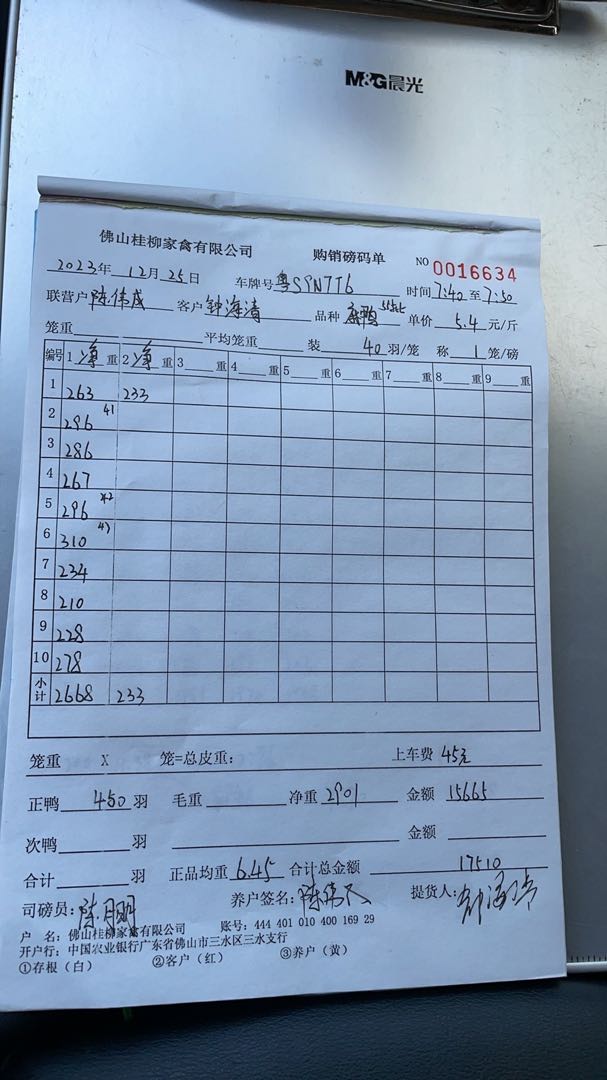 M&G晨光
佛山桂柳家禽有限公司 购销磅码单 NO 0016634
2023年 12月 25日 车牌号 粤SPN7T6 时间 7:40 至 7:50
联营户 陈伟成 客户 钟海清 品种 单价 5.4 元/斤
笼重 平均笼重 装 40 羽/笼 称 1 笼/磅
编号 1 净 重 2 净 重 3 重 4 重 5 重 6 重 7 重 8 重 9 重
1 263 233
2 296 41
3 286
4 267
5 296
6 310
7 234
8 210
9 228
10 278
小计 2668 233
笼重 X 笼=总皮重: 上车费 45元
正鸭 450 羽 毛重 净重 2901 金额 15665
次鸭 羽 金额
合计 羽 正品均重 6.45 合计总金额 17510
司磅员: 陈月明 养户签名: 提货人:
户 名: 佛山桂柳家禽有限公司 账号: 444 401 010 400 169 29
开户行: 中国农业银行广东省佛山市三水区三水支行
①存根(白) ②客户(红) ③养户(黄)